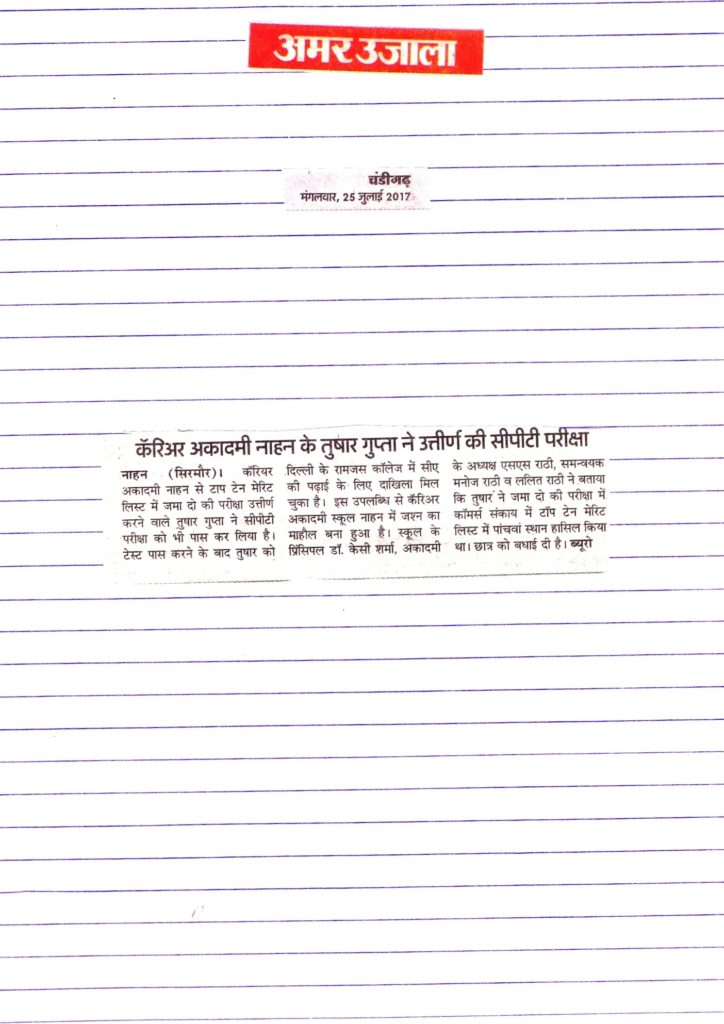 अमर उजाला
चंडीगढ़
मंगलवार, 25 जुलाई 2017
कॅरिअर अकादमी नाहन के तुषार गुप्ता ने उत्तीर्ण की सीपीटी परीक्षा
नाहन (सिरमौर)। कॅरियर
अकादमी नाहन से टाप टेन मेरिट
लिस्ट में जमा दो की परीक्षा उत्तीर्ण
करने वाले तुषार गुप्ता ने सीपीटी
परीक्षा को भी पास कर लिया है।
टेस्ट पास करने के बाद तुषार को
दिल्ली के रामजस कॉलेज में सीए
की पढ़ाई के लिए दाखिला मिल
चुका है। इस उपलब्धि से कॅरिअर
अकादमी स्कूल नाहन में जश्न का
माहौल बना हुआ है। स्कूल के
प्रिंसिपल डॉ. केसी शर्मा, अकादमी
के अध्यक्ष एसएस राठी, समन्वयक
मनोज राठी व ललित राठी ने बताया
कि तुषार ने जमा दो की परीक्षा में
कॉमर्स संकाय में टॉप टेन मेरिट
लिस्ट में पांचवां स्थान हासिल किया
था। छात्र को बधाई दी है। ब्यूरो